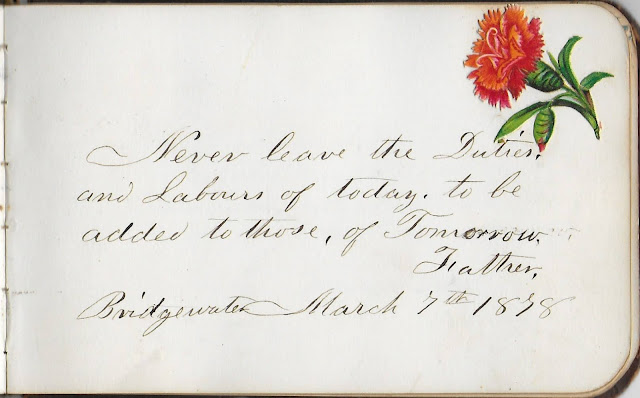 Never leave the Duties,
and Labours of today. to be
added to those, of Tomorrow.
Father.
Bridgewater March 7th 1878